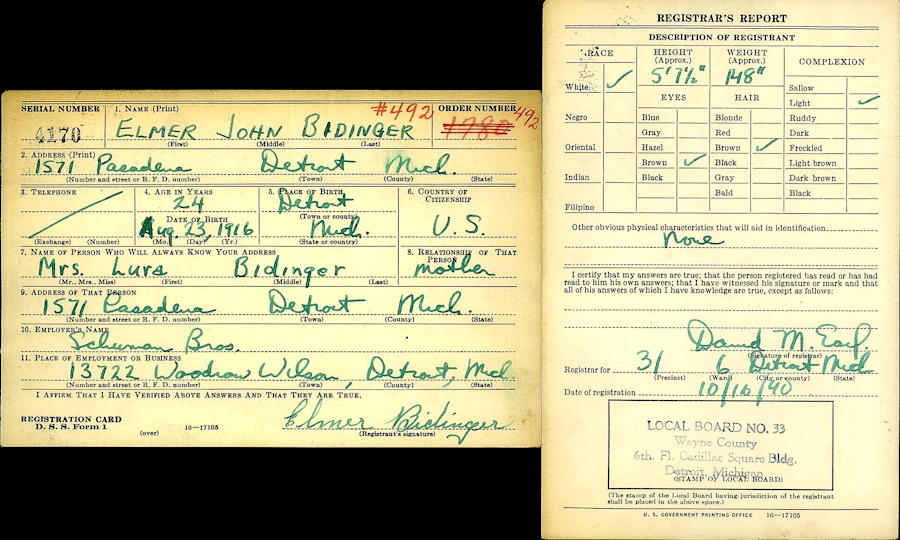 SERIAL NUMBER
4170
1. NAME (Print)
#492
ELMER JOHN BIDINGER
(First) (Middle) (Last)
ORDER NUMBER
492
1980
2. ADDRESS (Print)
1571 Pasadena Detroit Mich.
(Number and street or R. F. D. number) (Town) (County) (State)
3. TELEPHONE
(Exchange) (Number)
4. AGE IN YEARS
24
DATE OF BIRTH
Aug 23, 1916
(Mo.) (Day) (Yr.)
5. PLACE OF BIRTH
Detroit
(Town or county)
Mich.
(State or country)
6. COUNTRY OF CITIZENSHIP
U.S.
7. NAME OF PERSON WHO WILL ALWAYS KNOW YOUR ADDRESS
Mrs. Lura Bidinger
(Mr., Mrs., Miss) (First) (Middle) (Last)
8. RELATIONSHIP OF THAT PERSON
mother
9. ADDRESS OF THAT PERSON
1571 Pasadena Detroit Mich.
(Number and street or R. F. D. number) (Town) (County) (State)
10. EMPLOYER'S NAME
Schuman Bros.
11. PLACE OF EMPLOYMENT OR BUSINESS
13722 Woodrow Wilson, Detroit, Mich.
(Number and street or R. F. D. number) (Town) (County) (State)
I AFFIRM THAT I HAVE VERIFIED ABOVE ANSWERS AND THAT THEY ARE TRUE.
REGISTRATION CARD
D. S. S. Form 1
(over)
16—17105
Elmer Bidinger
(Registrant's signature)
REGISTRAR'S REPORT
DESCRIPTION OF REGISTRANT
RACE
White ✓
Negro
Oriental
Indian
Filipino
HEIGHT (Approx.)
5'7½"
WEIGHT (Approx.)
148"
EYES
Blue
Gray
Hazel
Brown ✓
Black
HAIR
Blonde
Red
Brown ✓
Black
Gray
Bald
COMPLEXION
Sallow
Light ✓
Ruddy
Dark
Freckled
Light brown
Dark brown
Black
Other obvious physical characteristics that will aid in identification
None
I certify that my answers are true; that the person registered has read or has had
read to him his own answers; that I have witnessed his signature or mark and that
all of his answers of which I have knowledge are true, except as follows:
David M. Earl
(Signature of registrar)
Registrar for 31 6 Detroit Mich
(Precinct) (Ward) (City or county) (State)
Date of registration 10/16/40
LOCAL BOARD NO. 33
Wayne County
6th. Fl. Cadillac Square Bldg.
Detroit, Michigan
(STAMP OF LOCAL BOARD)
(The stamp of the Local Board having jurisdiction of the registrant
shall be placed in the above space.)
U. S. GOVERNMENT PRINTING OFFICE 16—17105